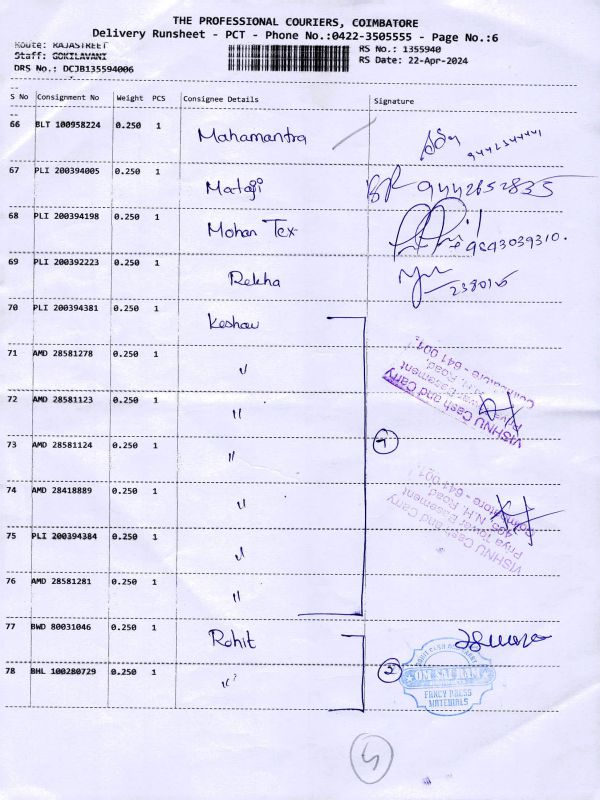 THE PROFESSIONAL COURIERS, COIMBATORE
Delivery Runsheet - PCT - Phone No.:0422-3505555 - Page No.:6
Route: RAJASTREET
RS No.: 1355940
Staff: GOKILAVANI
RS Date: 22-Apr-2024
DRS No.: DCJB135594006
S No Consignment No Weight PCS Consignee Details Signature
66 BLT 100958224 0.250 1 Mahamantra
67 PLI 200394005 0.250 1 Mataji 9442652835
68 PLI 200394198 0.250 1 Mohan Tex 9693039310.
69 PLI 200392223 0.250 1 Rekha
70 PLI 200394381 0.250 1 Keshav
71 AMD 28581278 0.250 1 "
72 AMD 28581123 0.250 1 "
VISHNU Cash and Carry
Coimbatore - 641 001.
73 AMD 28581124 0.250 1 "
74 AMD 28418889 0.250 1 "
VISHNU Cash and Carry
Priya Towar Basement
405, N.H. Road,
Coimbatore - 641 001.
75 PLI 200394384 0.250 1 "
76 AMD 28581281 0.250 1 "
77 BWD 80031046 0.250 1 Rohit
78 BHL 100280729 0.250 1 " 2
OM SAI RAM
FANCY PRESS
MATERIALS